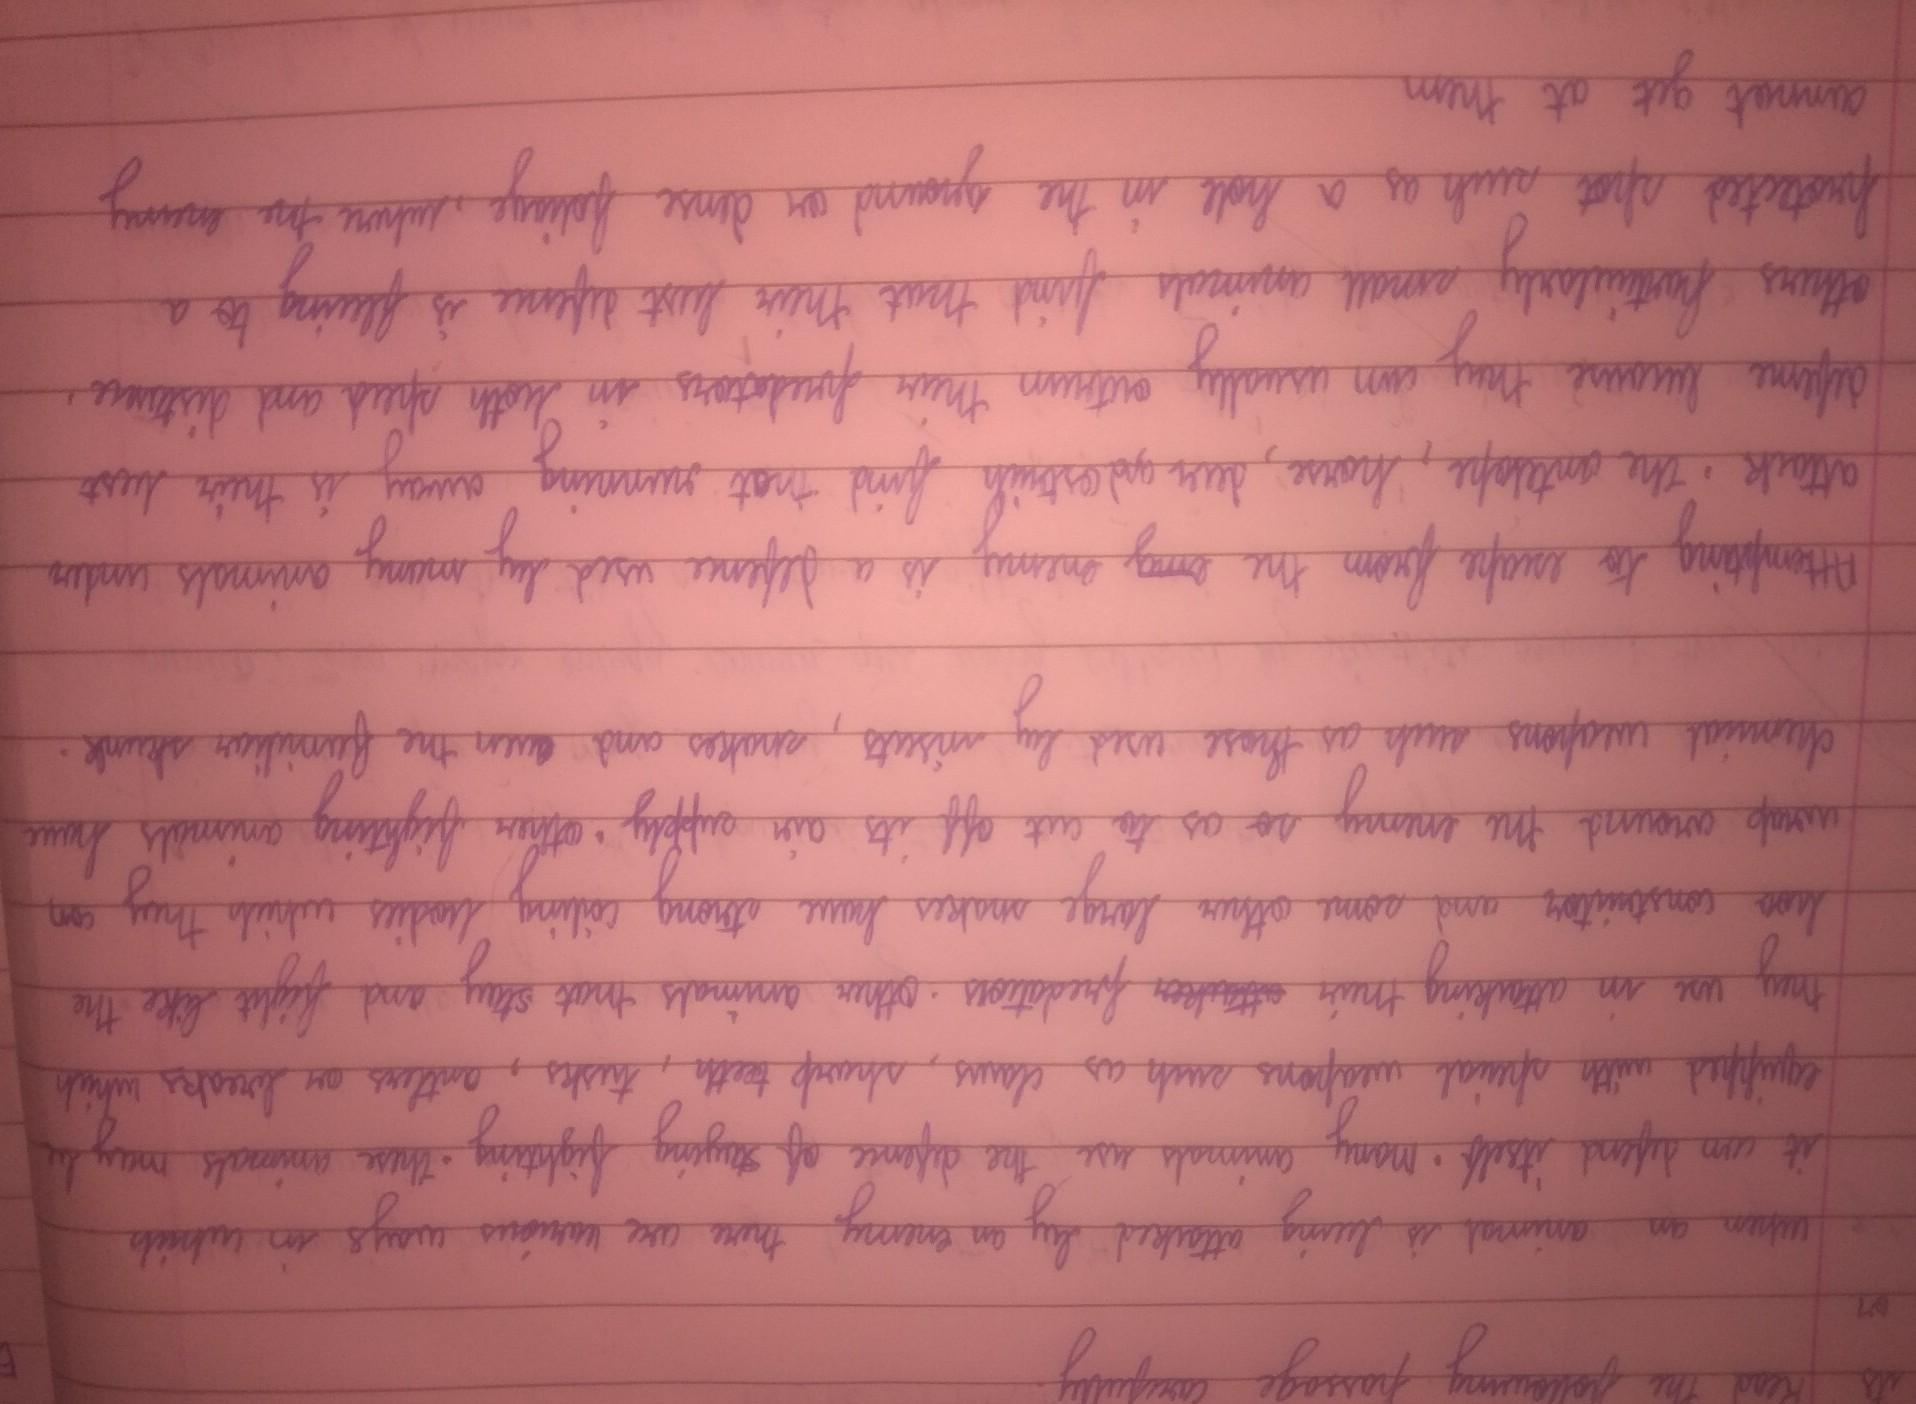 Read the following passage carefully
when an animal is being attacked by an enemy there are various ways in which
it can defend itself. Many animals use the defence of staying fighting. These animals may be
equipped with special weapons such as claws, sharp teeth, tusks, antlers or breaks which
they use in attacking their predators. Other animals that stay and fight like the
boo constrictor and some other large snakes have strong coiling bodies which they con
wrap around the enemy so as to cut off its air supply. Other fighting animals have
chemical weapons such as those used by insects, snakes and even the familiar skunk.
Attempting to escape from the enemy is a defence used by many animals under
attack. The antelope, horse, deer and ostrich find that running away is their best
defence because they can usually outrun their predators in both speed and distance.
others particularly small animals find that their best defence is fleeing to a
protected spot such as a hole in the ground or dense foliage, where the enemy
cannot get at them